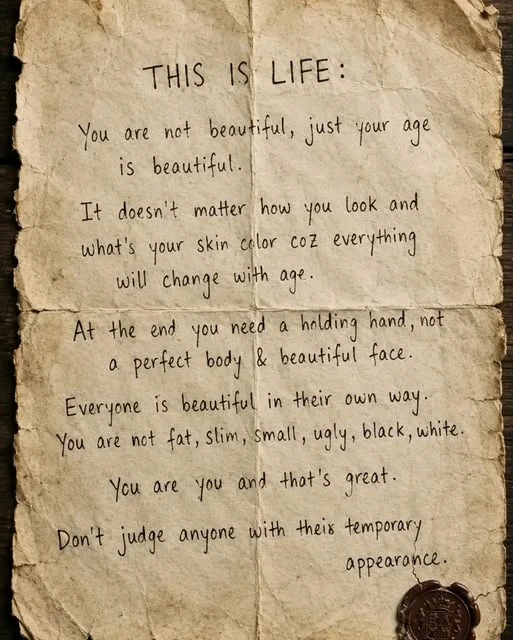 THIS IS LIFE:
You are not beautiful, just your age
is beautiful.
It doesn't matter how you look and
what's your skin color coz everything
will change with age.
At the end you need a holding hand, not
a perfect body & beautiful face.
Everyone is beautiful in their own way.
You are not fat, slim, small, ugly, black, white.
You are you and that's great.
Don't judge anyone with their temporary
appearance.